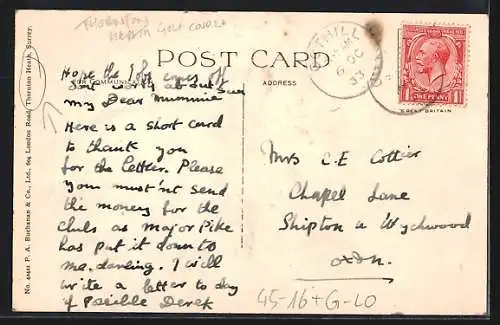 THORNTON
HEATH Golf Course
POST CARD
FOR COMMUNICATION
ADDRESS
Hope the Jobs comes off
Dont worry about Susan
my Dear Mummie
Here is a short card
to thank you
for the letter. Please
you must'nt send
the money for the
clubs as Major Pike
has put it down to
ma. darling. I will
write a letter to day
if possible Derek
Mrs C.E Cottier
Chapel Lane
Shipton u Wychwood
oxon.
45-16+G-LO
6 OC
33
ONE PENNY
GREAT BRITAIN
No. 40481 P. A. Buchanan & Co., Ltd., 604 London Road, Thornton Heath, Surrey.